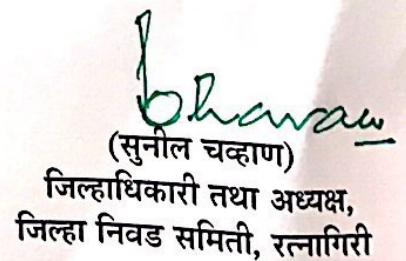 (सुनील चव्हाण)
जिल्हाधिकारी तथा अध्यक्ष,
जिल्हा निवड समिती, रत्नागिरी